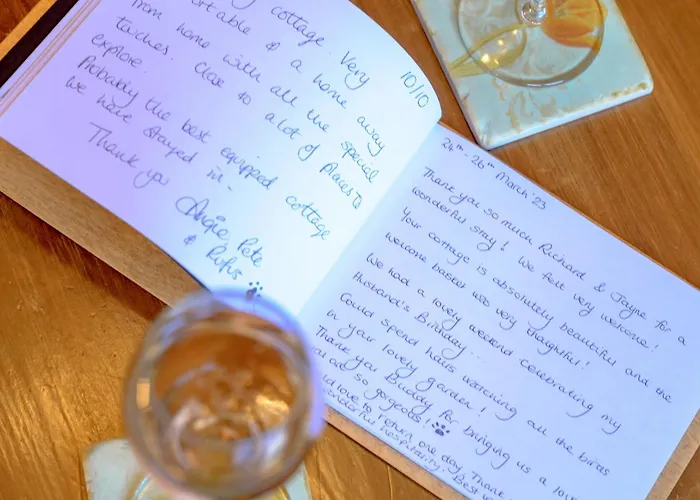 cottage. Very
comfortable & a home away
from home with all the special
touches. Close to a lot of places to
explore.
Probably the best equipped cottage
we have stayed in.
Thank you
Angie, Pete
& Rufus
10/10
24th - 26th March '23
Thank you so much Richard & Jayne for a
wonderful stay! We felt very welcome!
Your cottage is absolutely beautiful and the
welcome basket was very thoughtful!
We had a lovely weekend celebrating my
Husband's Birthday...
Could spend hours watching all the birds
in your lovely garden!
Thank you Buddy for bringing us a
are so gorgeous!
love to return one day, Thank
wonderful hospitality. Best